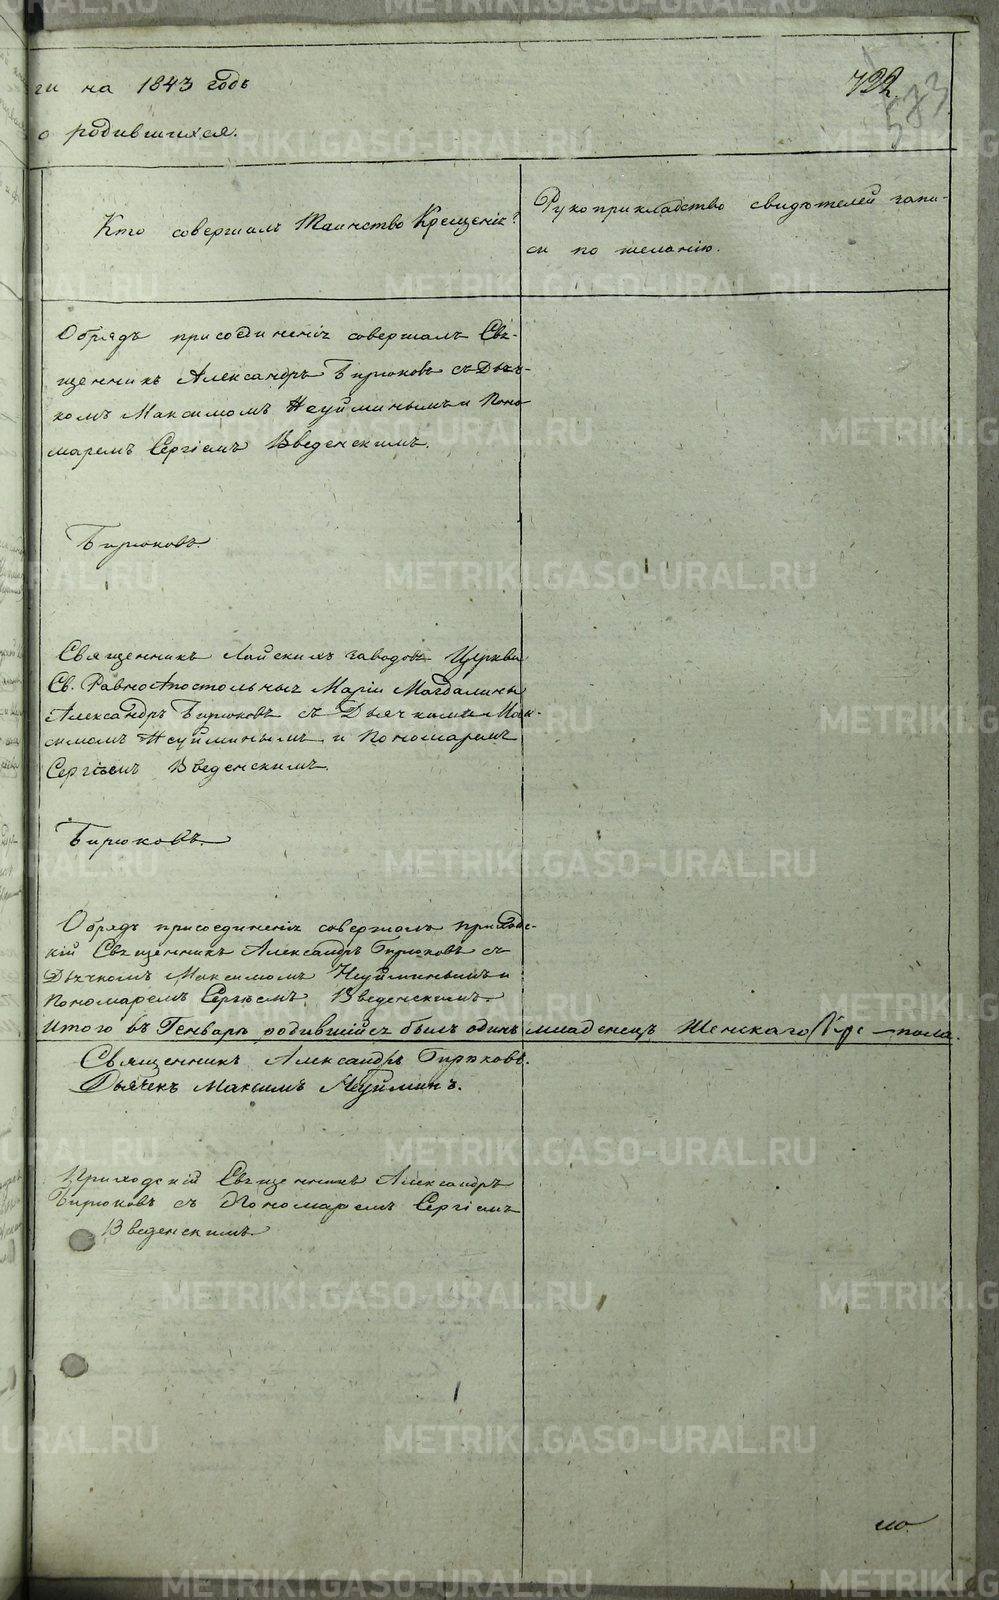 ги на 1843 годъ
722.
533
о родившихся.
Кто совершалъ Таинство Крещенія?
Рукоприкладство свидѣтелей запи-
си по желанію.
Обрядъ присоединенія совершалъ Свя-
щенникъ Александръ Бирюковъ съ Дьяч-
комъ Максимомъ Неуйминымъ и Поно-
маремъ Сергіемъ Введенскимъ.
Бирюковъ.
Священникъ Лайскихъ заводовъ Церкви
Св. Равноапостольныя Маріи Магдалины
Александръ Бирюковъ съ Дьячкомъ Мак-
симомъ Неуйминымъ и Пономаремъ
Сергіемъ Введенскимъ.
Бирюковъ.
Обрядъ присоединенія совершалъ приход-
скій Священникъ Александръ Бирюковъ съ
Дьячкомъ Максимомъ Неуйминымъ и
Пономаремъ Сергіемъ Введенскимъ.
Итого въ Генварѣ родившійся былъ одинъ младенецъ Женскаго пола.
Священникъ Александръ Бирюковъ.
Дьячекъ Максимъ Неуйминъ.
Приходскій Священникъ Александръ
Бирюковъ съ Пономаремъ Сергіемъ
Введенскимъ.
METRIKI.GASO-URAL.RU